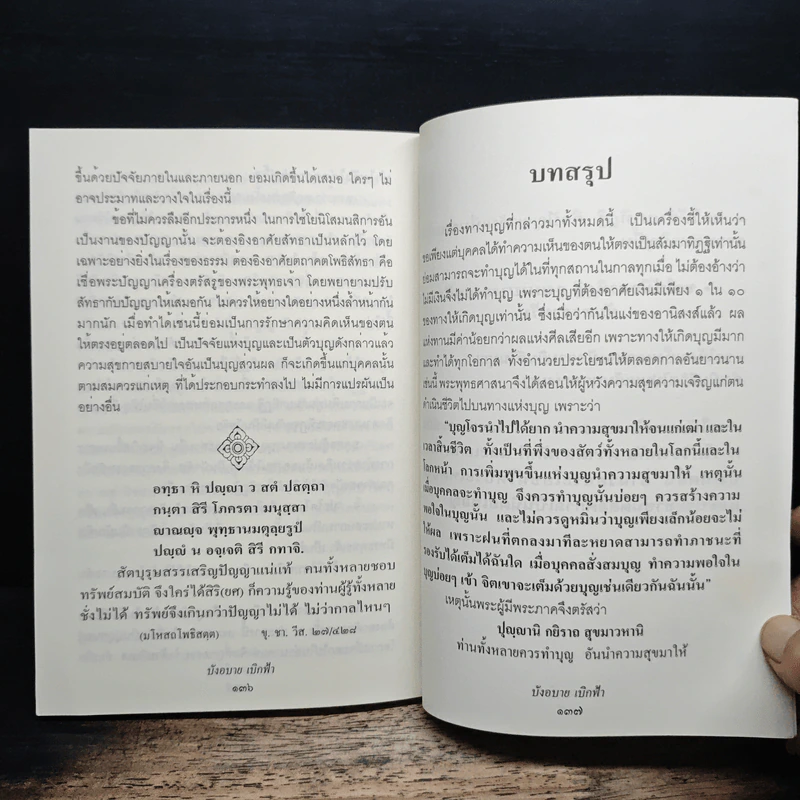 ขึ้นด้วยปัจจัยภายในและภายนอก ย่อมเกิดขึ้นได้เสมอ ใครๆ ไม่
อาจประมาทและวางใจในเรื่องนี้
ข้อที่ไม่ควรลืมอีกประการหนึ่ง ในการใช้โยนิโสมนสิการอัน
เป็นงานของปัญญานั้น จะต้องอิงอาศัยสัทธาเป็นหลักไว้ โดย
เฉพาะอย่างยิ่งในเรื่องของธรรม ต้องอิงอาศัยตถาคตโพธิสัทธา คือ
เชื่อพระปัญญาเครื่องตรัสรู้ของพระพุทธเจ้า โดยพยายามปรับ
สัทธากับปัญญาให้เสมอกัน ไม่ควรให้อย่างใดอย่างหนึ่งล้ำหน้ากัน
มากนัก เมื่อทำได้เช่นนี้ย่อมเป็นการรักษาความคิดเห็นของตน
ให้ตรงอยู่ตลอดไป เป็นปัจจัยแห่งบุญและเป็นตัวบุญดังกล่าวแล้ว
ความสุขกายสบายใจอันเป็นบุญส่วนผล ก็จะเกิดขึ้นแก่บุคคลนั้น
ตามสมควรแก่เหตุ ที่ได้ประกอบกระทำลงไป ไม่มีการแปรผันเป็น
อย่างอื่น
อทฺธา หิ ปญฺญา ว สตํ ปสตฺถา
กนฺตา สิรี โภครตา มนุสฺสา
ญาณญฺจ พุทฺธานมตุลฺยรูปํ
ปญฺญํ น อจฺเจติ สิรี กทาจิ.
สัตบุรุษสรรเสริญปัญญาแน่แท้ คนทั้งหลายชอบ
ทรัพย์สมบัติ จึงใคร่ได้สิริ(ยศ) ก็ความรู้ของท่านผู้รู้ทั้งหลาย
ชั่งไม่ได้ ทรัพย์จึงเกินกว่าปัญญาไม่ได้ ไม่ว่ากาลไหนๆ
(มโหสถโพธิสตฺต) ขุ. ชา. วีส. ๒๗/๔๒๘
บังอบาย เบิกฟ้า
๑๓๖
บทสรุป
เรื่องทางบุญที่กล่าวมาทั้งหมดนี้ เป็นเครื่องชี้ให้เห็นว่า
ขอเพียงแต่บุคคลได้ทำความเห็นของตนให้ตรงเป็นสัมมาทิฏฐิเท่านั้น
ย่อมสามารถจะทำบุญได้ในที่ทุกสถานในกาลทุกเมื่อ ไม่ต้องอ้างว่า
ไม่มีเงินจึงไม่ได้ทำบุญ เพราะบุญที่ต้องอาศัยเงินมีเพียง ๑ ใน ๑๐
ของทางให้เกิดบุญเท่านั้น ซึ่งเมื่อว่ากันในแง่ของอานิสงส์แล้ว ผล
แห่งทานมีค่าน้อยกว่าผลแห่งศีลเสียอีก เพราะทางให้เกิดบุญมีมาก
และทำได้ทุกโอกาส ทั้งอำนวยประโยชน์ให้ตลอดกาลอันยาวนาน
เช่นนี้ พระพุทธศาสนาจึงได้สอนให้ผู้หวังความสุขความเจริญแก่ตน
ดำเนินชีวิตไปบนทางแห่งบุญ เพราะว่า
“บุญโจรนำไปได้ยาก นำความสุขมาให้จนแก่เฒ่า และใน
เวลาสิ้นชีวิต ทั้งเป็นที่พึ่งของสัตว์ทั้งหลายในโลกนี้และใน
โลกหน้า การเพิ่มพูนขึ้นแห่งบุญนำความสุขมาให้ เหตุนั้น
เมื่อบุคคลจะทำบุญ จึงควรทำบุญนั้นบ่อยๆ ควรสร้างความ
พอใจในบุญนั้น และไม่ควรดูหมิ่นว่าบุญเพียงเล็กน้อยจะไม่
ให้ผล เพราะฝนที่ตกลงมาทีละหยาดสามารถทำภาชนะที่
รองรับได้เต็มได้ฉันใด เมื่อบุคคลสั่งสมบุญ ทำความพอใจใน
บุญบ่อยๆ เข้า จิตเขาจะเต็มด้วยบุญเช่นเดียวกันฉันนั้น”
เหตุนั้นพระผู้มีพระภาคจึงตรัสว่า
ปุญฺญานิ กยิราถ สุขมาวหานิ
ท่านทั้งหลายควรทำบุญ อันนำความสุขมาให้
บังอบาย เบิกฟ้า
๑๓๗